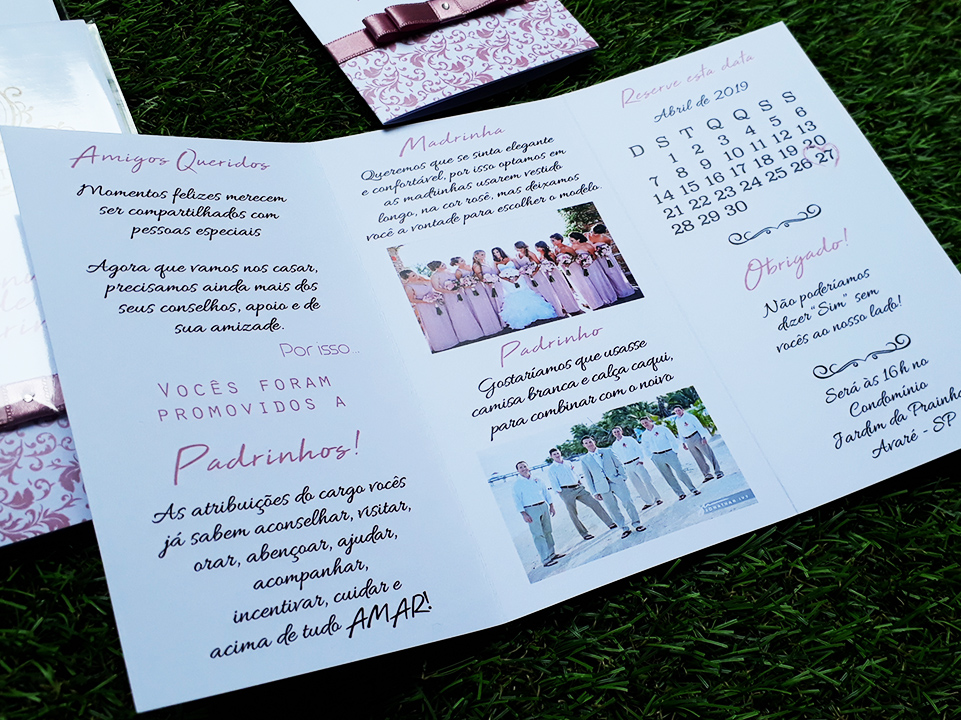 Amigos Queridos
Momentos felizes merecem
ser compartilhados com
pessoas especiais
Agora que vamos nos casar,
precisamos ainda mais dos
seus conselhos, apoio e de
sua amizade.
Por isso...
VOCÊS FORAM
PROMOVIDOS A
Padrinhos!
As atribuições do cargo vocês
já sabem aconselhar, visitar,
orar, abençoar, ajudar,
acompanhar,
incentivar, cuidar e
acima de tudo AMAR!
Madrinha
Queremos que se sinta elegante
e confortável, por isso optamos em
as madrinhas usarem vestido
longo, na cor rosê, mas deixamos
você a vontade para escolher o modelo.
Padrinho
Gostaríamos que usasse
camisa branca e calça caqui,
para combinar com o noivo
Reserve esta data
Abril de 2019
D S T Q Q S S
1 2 3 4 5 6
7 8 9 10 11 12 13
14 15 16 17 18 19 20
21 22 23 24 25 26 27
28 29 30
Obrigado!
Não poderíamos
dizer "Sim" sem
vocês ao nosso lado!
Será às 16h no
Condomínio
Jardim da Prainha
Avaré - SP